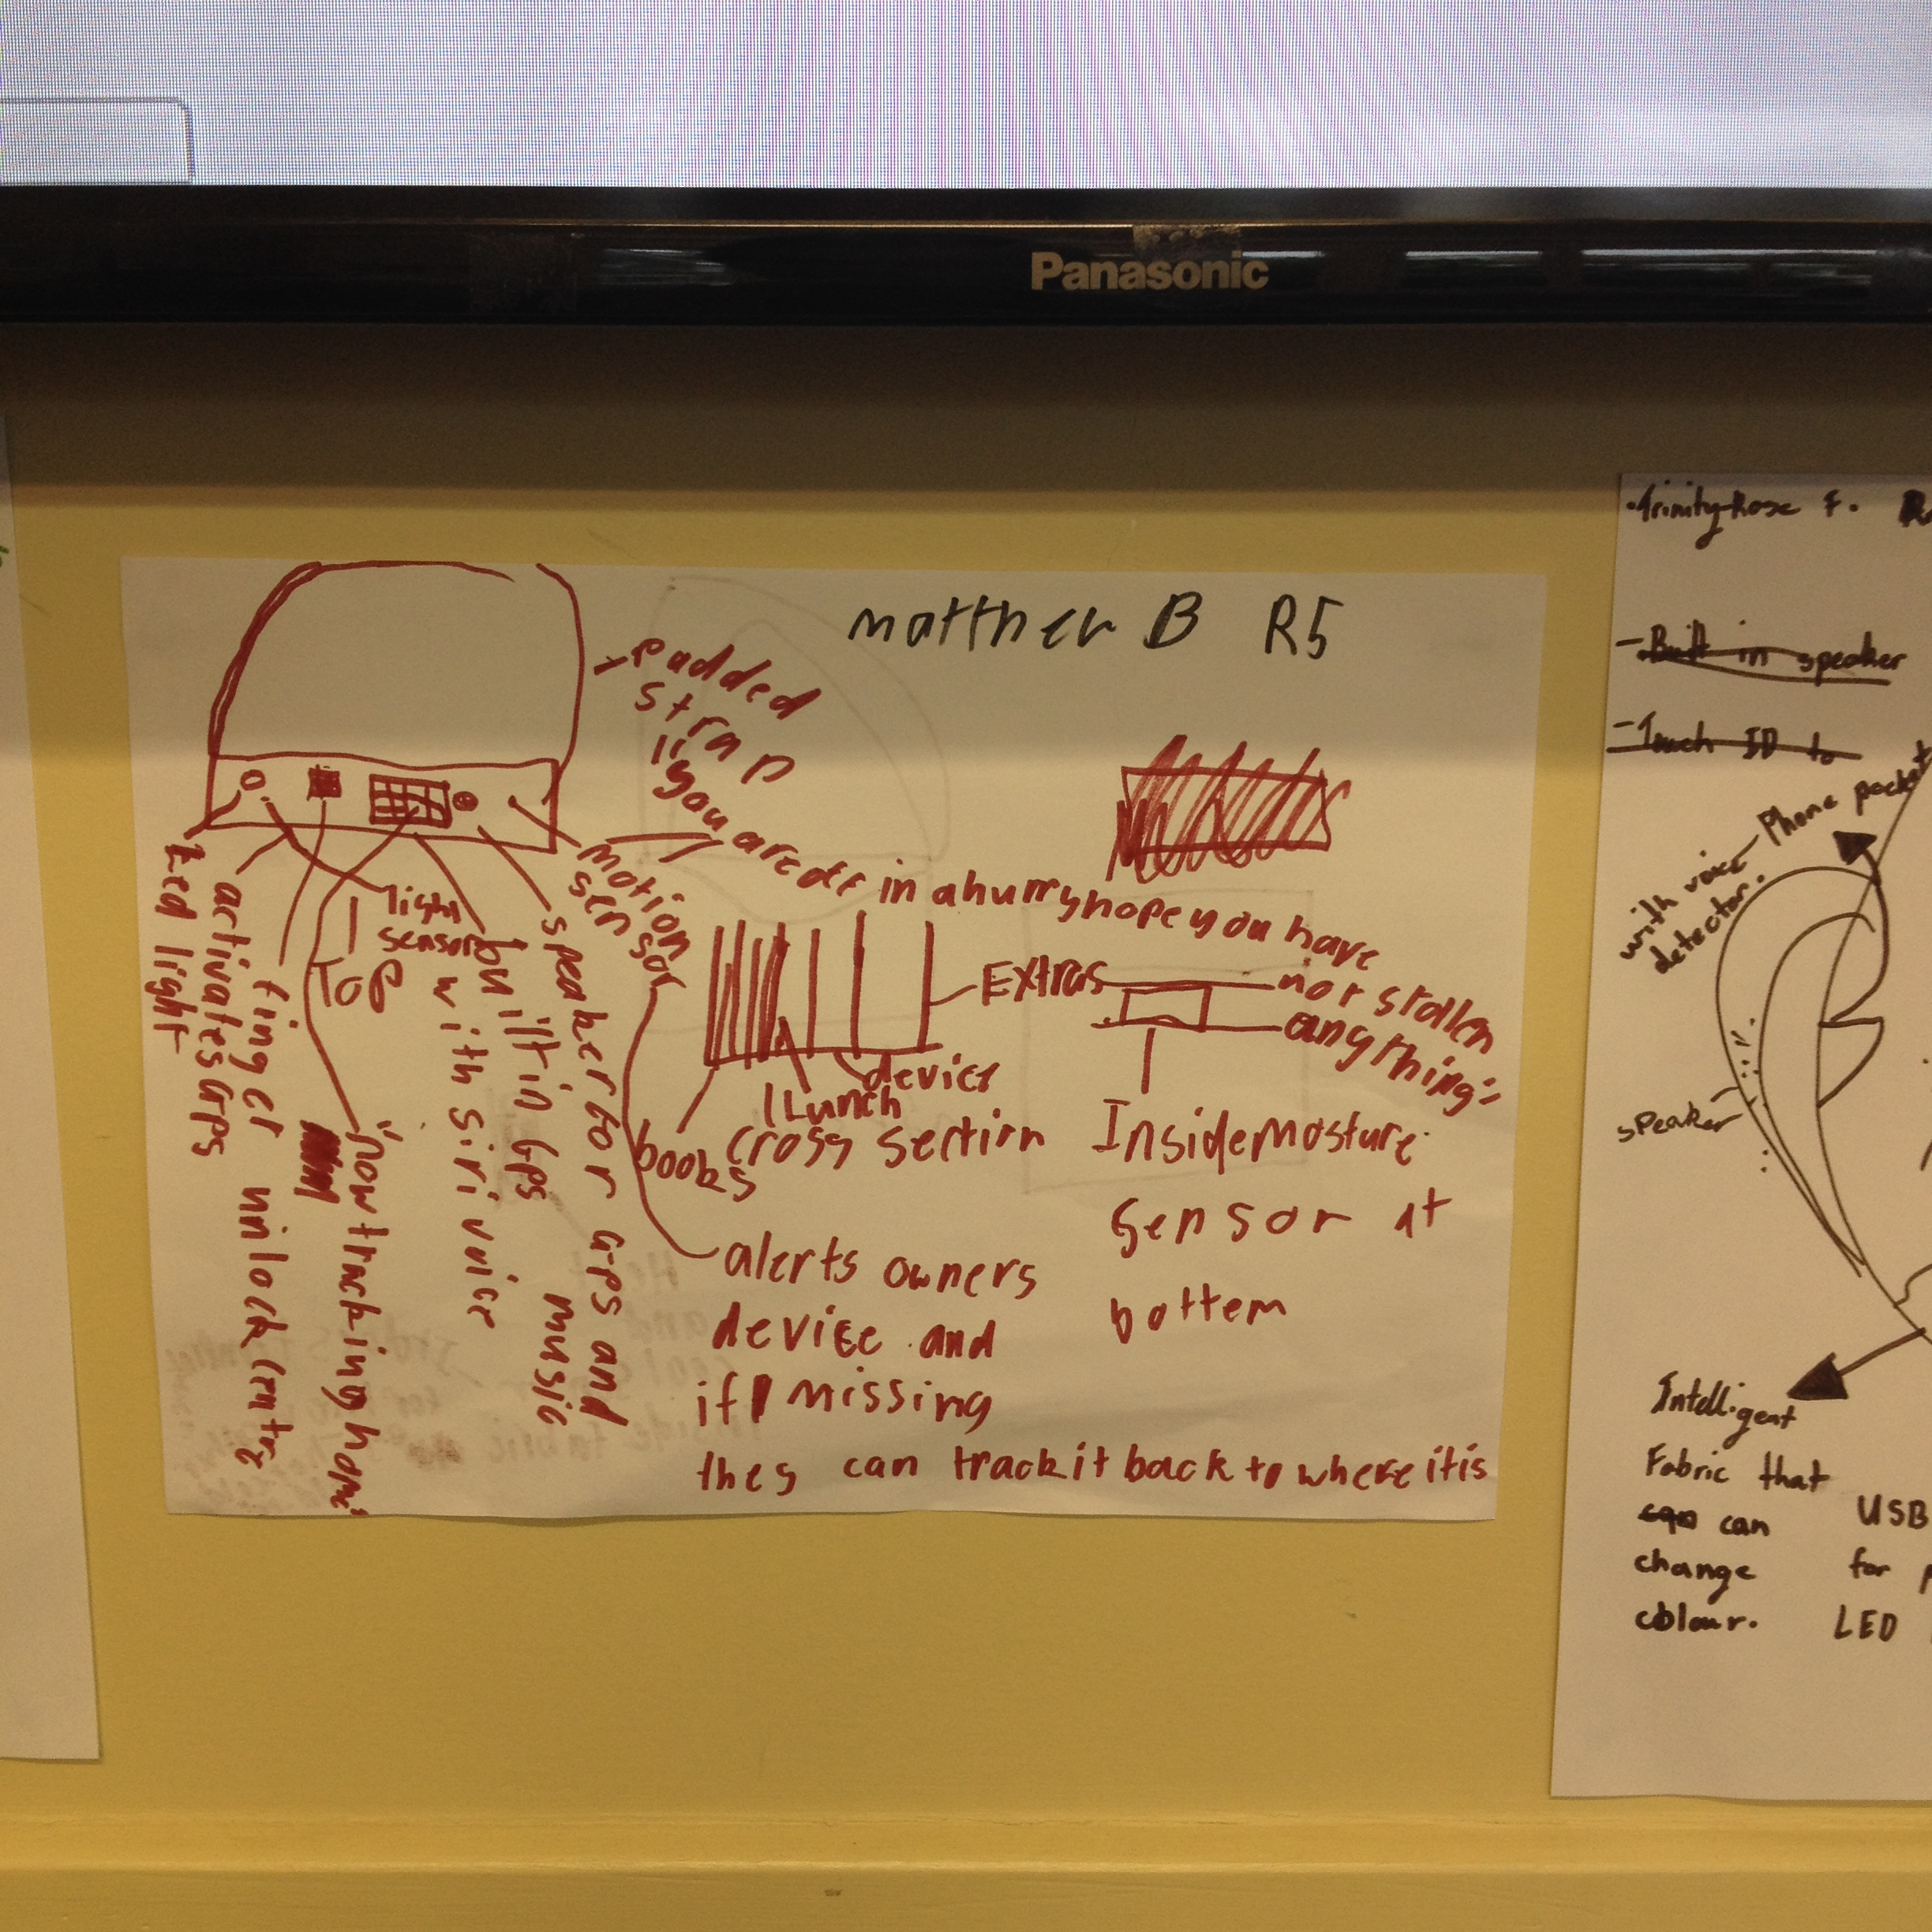 Panasonic
matthew B R5
padded
strap
"you are off in a hurry hope you have
not stollen
anything"
motion
sensor
light
sensor
TOP
Led light
activates GPS
finger unlock centre
"now tracking home"
built in GPS
with siri voice
speaker for GPS and
music
Extras
device
Lunch
books
cross section
Inside Mosture
Sensor at
bottem
alerts owners
device and
if missing
they can track it back to where it is
Trinity-Rose F.
- Built in speaker
- Touch ID to
Phone pocket
with voice
detector.
speaker
Intelligent
Fabric that
can
change
colour.
USB
for
LED